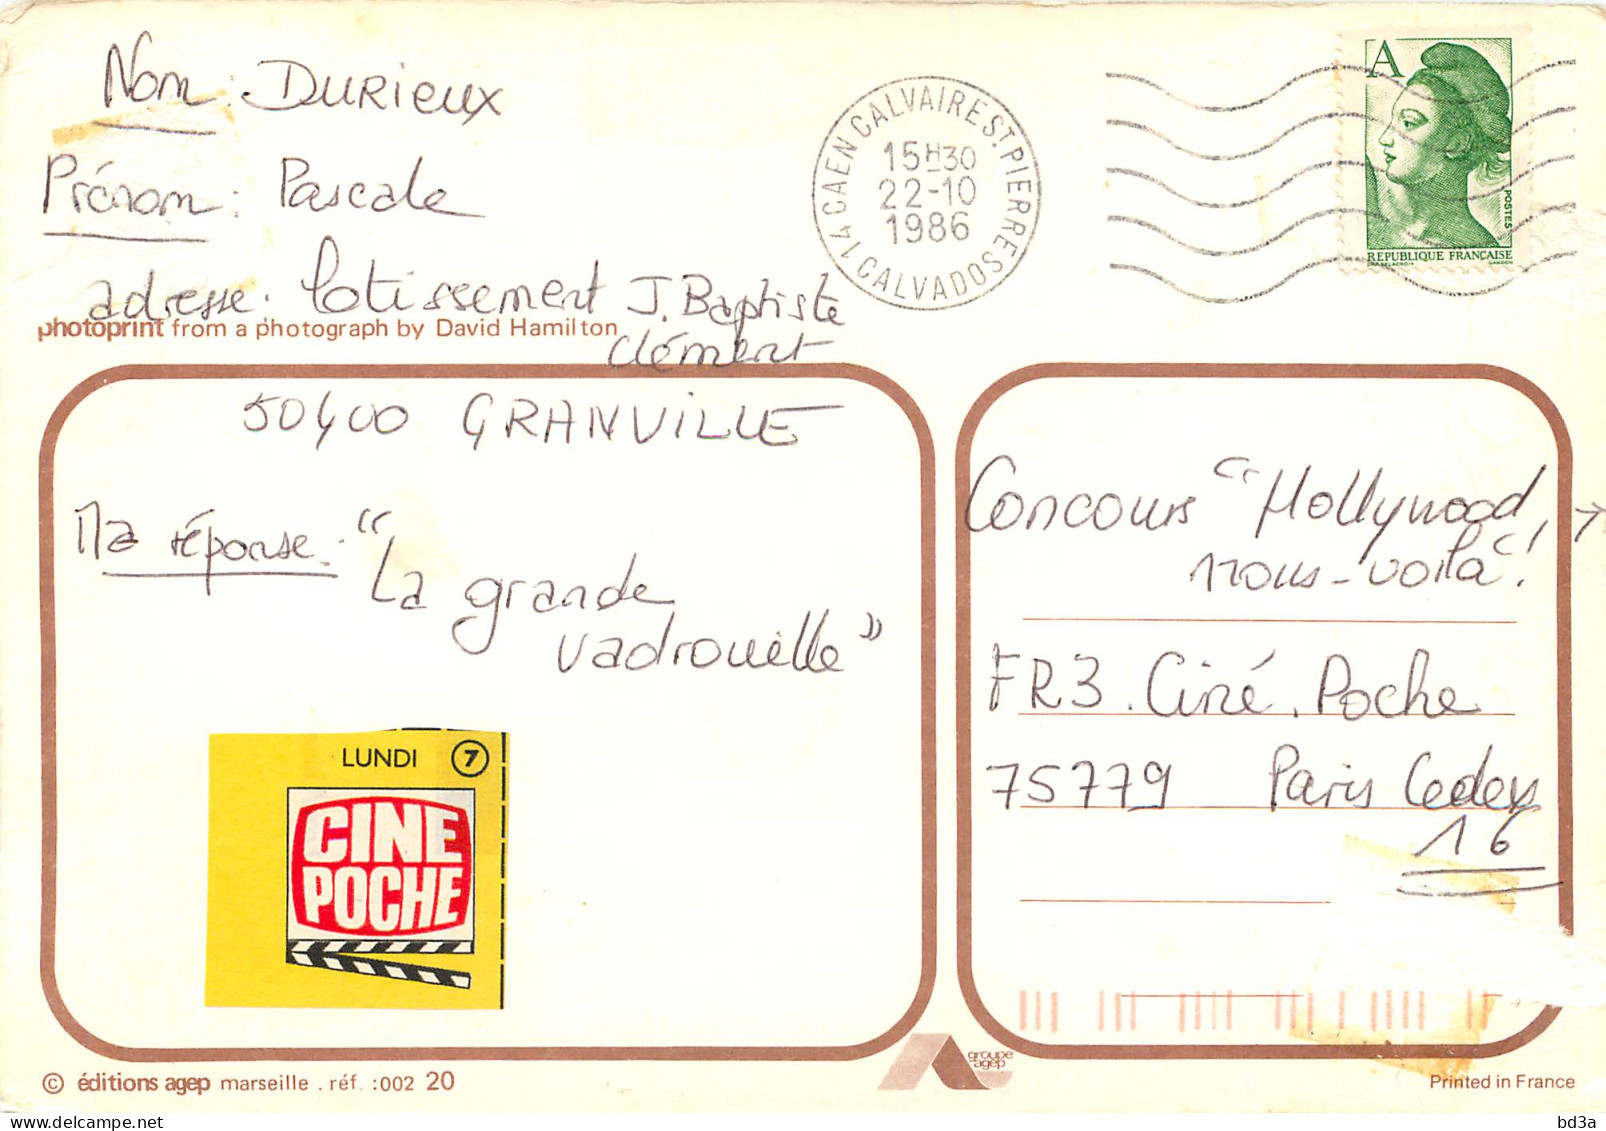 Nom : DURIEUX
Prénom : Pascale
adresse : lotissement J. Baptiste
Clément
photoprint from a photograph by David Hamilton
50400 GRANVILLE
Ma réponse : "La grande
vadrouille"
LUNDI 7
CINE
POCHE
© éditions agep marseille . réf. :002 20
14 CAEN CALVAIRE ST. PIERRE CALVADOS
15H30
22-10
1986
A
POSTES
REPUBLIQUE FRANÇAISE
GANDON
Concours "Hollywood,
nous-voilà"!
FR3. Ciné. Poche
75779 Paris Cedex
16
groupe
agep
Printed in France
bd3a